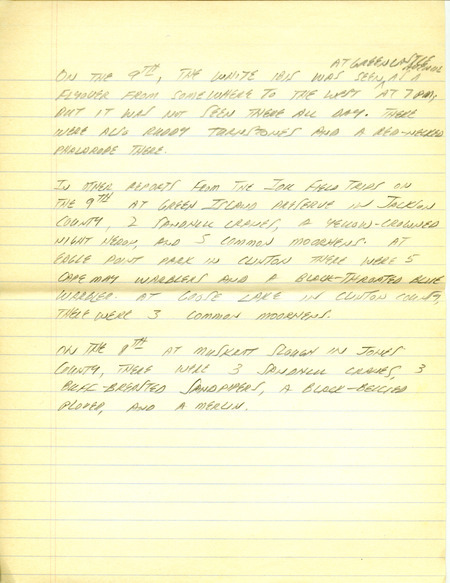 AT GREEN CASTLE AVENUE
ON THE 9TH, THE WHITE IBIS WAS SEEN AS A
FLYOVER FROM SOMEWHERE TO THE WEST AT 7 PM,
BUT IT WAS NOT SEEN THERE ALL DAY. THERE
WERE ALSO RUDDY TURNSTONES AND A RED-NECKED
PHALAROPE THERE.
IN OTHER REPORTS FROM THE IOU FIELD TRIPS ON
THE 9TH AT GREEN ISLAND PRESERVE IN JACKSON
COUNTY, 2 SANDHILL CRANES, A YELLOW-CROWNED
NIGHT HERON, AND 5 COMMON MOORHENS. AT
EAGLE POINT PARK IN CLINTON THERE WERE 5
CAPE MAY WARBLERS AND A BLACK-THROATED BLUE
WARBLER. AT GOOSE LAKE IN CLINTON COUNTY,
THERE WERE 3 COMMON MOORHENS.
ON THE 8TH AT MUSKRAT SLOUGH IN JONES
COUNTY, THERE WERE 3 SANDHILL CRANES, 3
BUFF-BRESTED SANDPIPERS, A BLACK-BELLIED
PLOVER, AND A MERLIN.